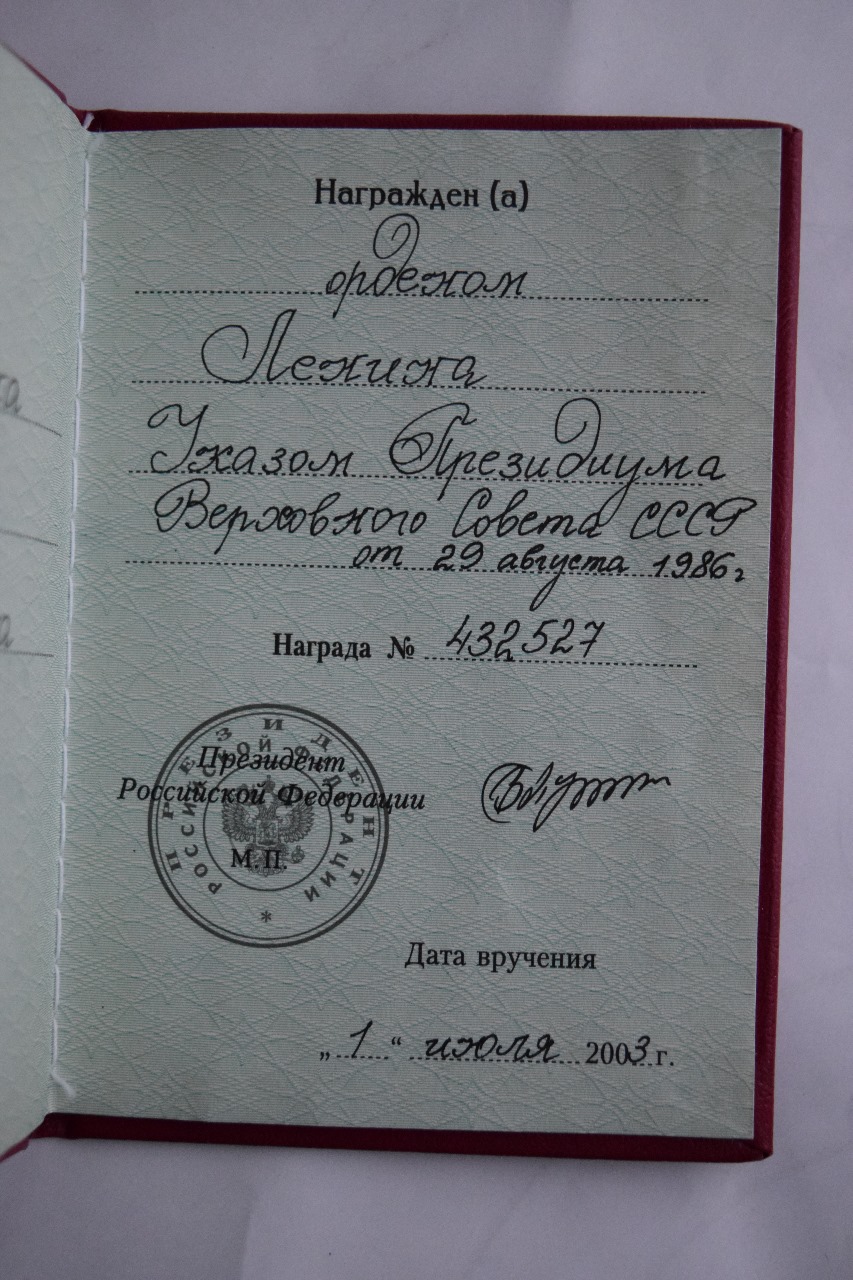 Награжден (а)
орденом
Ленина
Указом Президиума
Верховного Совета СССР
от 29 августа 1986г
Награда № 432527
ПРЕЗИДЕНТ
РОССИЙСКОЙ ФЕДЕРАЦИИ
Президент
Российской Федерации
М.П.
Дата вручения
„ 1 “ июля 2003 г.